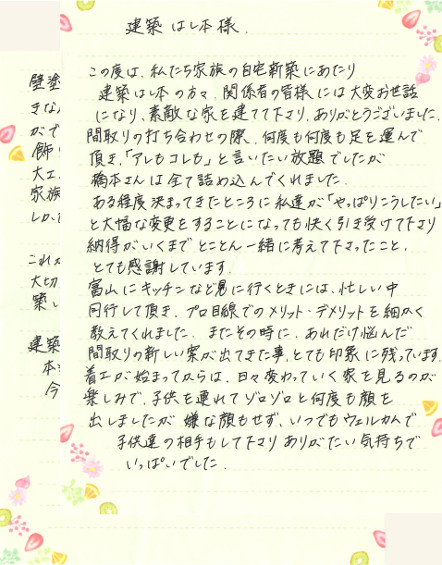 建築 はし本様.
この度は、私たち家族の自宅新築にあたり
建築はし本の方々、関係者の皆様には大変お世話
になり、素敵な家を建てて下さり、ありがとうございました.
間取りの打ち合わせの際、何度も何度も足を運んで
頂き、「アレもコレも」と言いたい放題でしたが
橋本さんは全て詰め込んでくれました.
ある程度決まってきたところに私達が「やっぱりこうしたい」
と大幅な変更をすることになっても快く引き受けて下さり
納得がいくまでとことん一緒に考えて下さったこと、
とても感謝しています.
富山にキッチンなど見に行くときには、忙しい中
同行して頂き、プロ目線でのメリット・デメリットを細かく
教えてくれました. またその時に、あれだけ悩んだ
間取りの新しい案が出てきた事、とても印象に残っています.
着工が始まってからは、日々変わっていく家を見るのが
楽しみで、子供を連れてゾロゾロと何度も顔を
出しましたが 嫌な顔もせず、いつでもウェルカムで
子供達の相手もして下さり ありがたい気持ちで
いっぱいでした.
壁塗
きな
がで
飾
大工
家族
しか
これ
大切
築し
建築
本
今